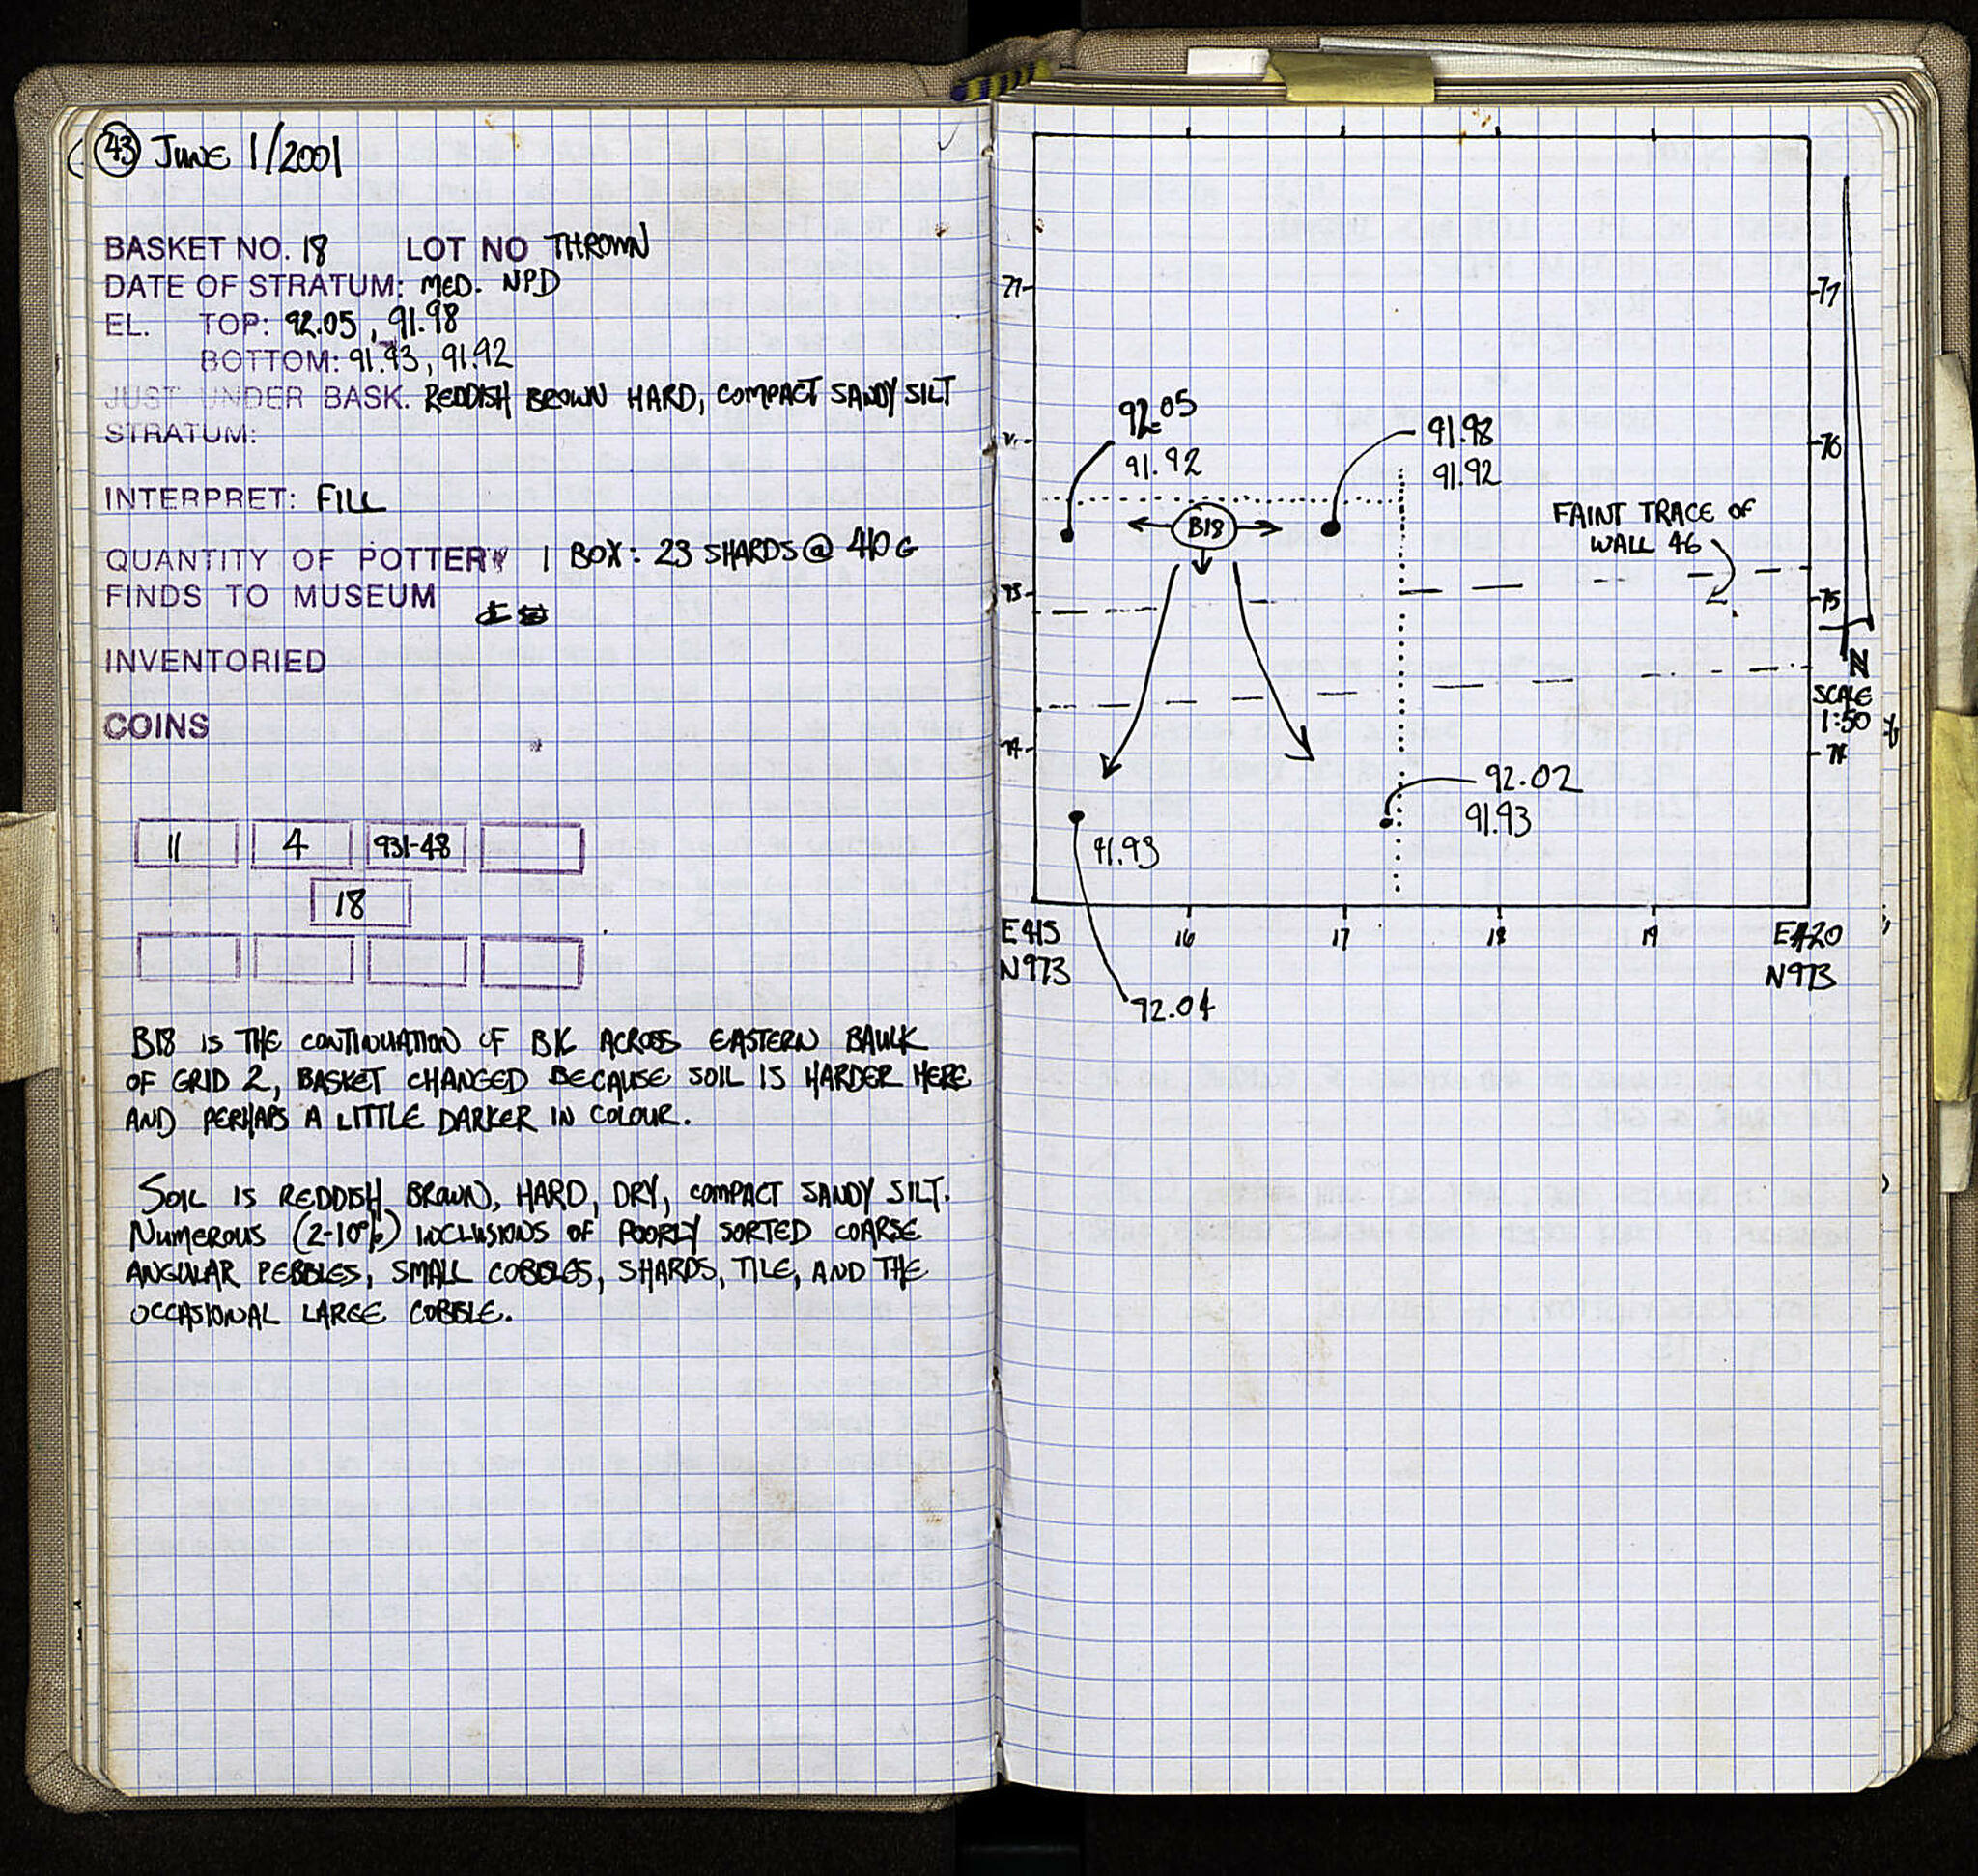 43 JUNE 1/2001
BASKET NO. 18 LOT NO THROWN
DATE OF STRATUM: MED. NPD
EL. TOP: 92.05, 91.98
BOTTOM: 91.93, 91.92
JUST UNDER BASK. REDDISH BROWN HARD, COMPACT SANDY SILT
STRATUM:
INTERPRET: FILL
QUANTITY OF POTTERY 1 BOX: 23 SHARDS @ 410 G
FINDS TO MUSEUM
INVENTORIED
COINS
11 4 931-48
18
B18 IS THE CONTINUATION OF B16 ACROSS EASTERN BAULK
OF GRID 2, BASKET CHANGED BECAUSE SOIL IS HARDER HERE
AND PERHAPS A LITTLE DARKER IN COLOUR.
SOIL IS REDDISH BROWN, HARD, DRY, COMPACT SANDY SILT.
NUMEROUS (2-10%) INCLUSIONS OF POORLY SORTED COARSE
ANGULAR PEBBLES, SMALL COBBLES, SHARDS, TILE, AND THE
OCCASIONAL LARGE COBBLE.
77 77
92.05
91.92
91.98
91.92
76
B18
FAINT TRACE OF
WALL 46
75 75
N
SCALE
1:50
74 74
92.02
91.93
91.93
E415 16 17 18 19 E420
N973 N973
92.04